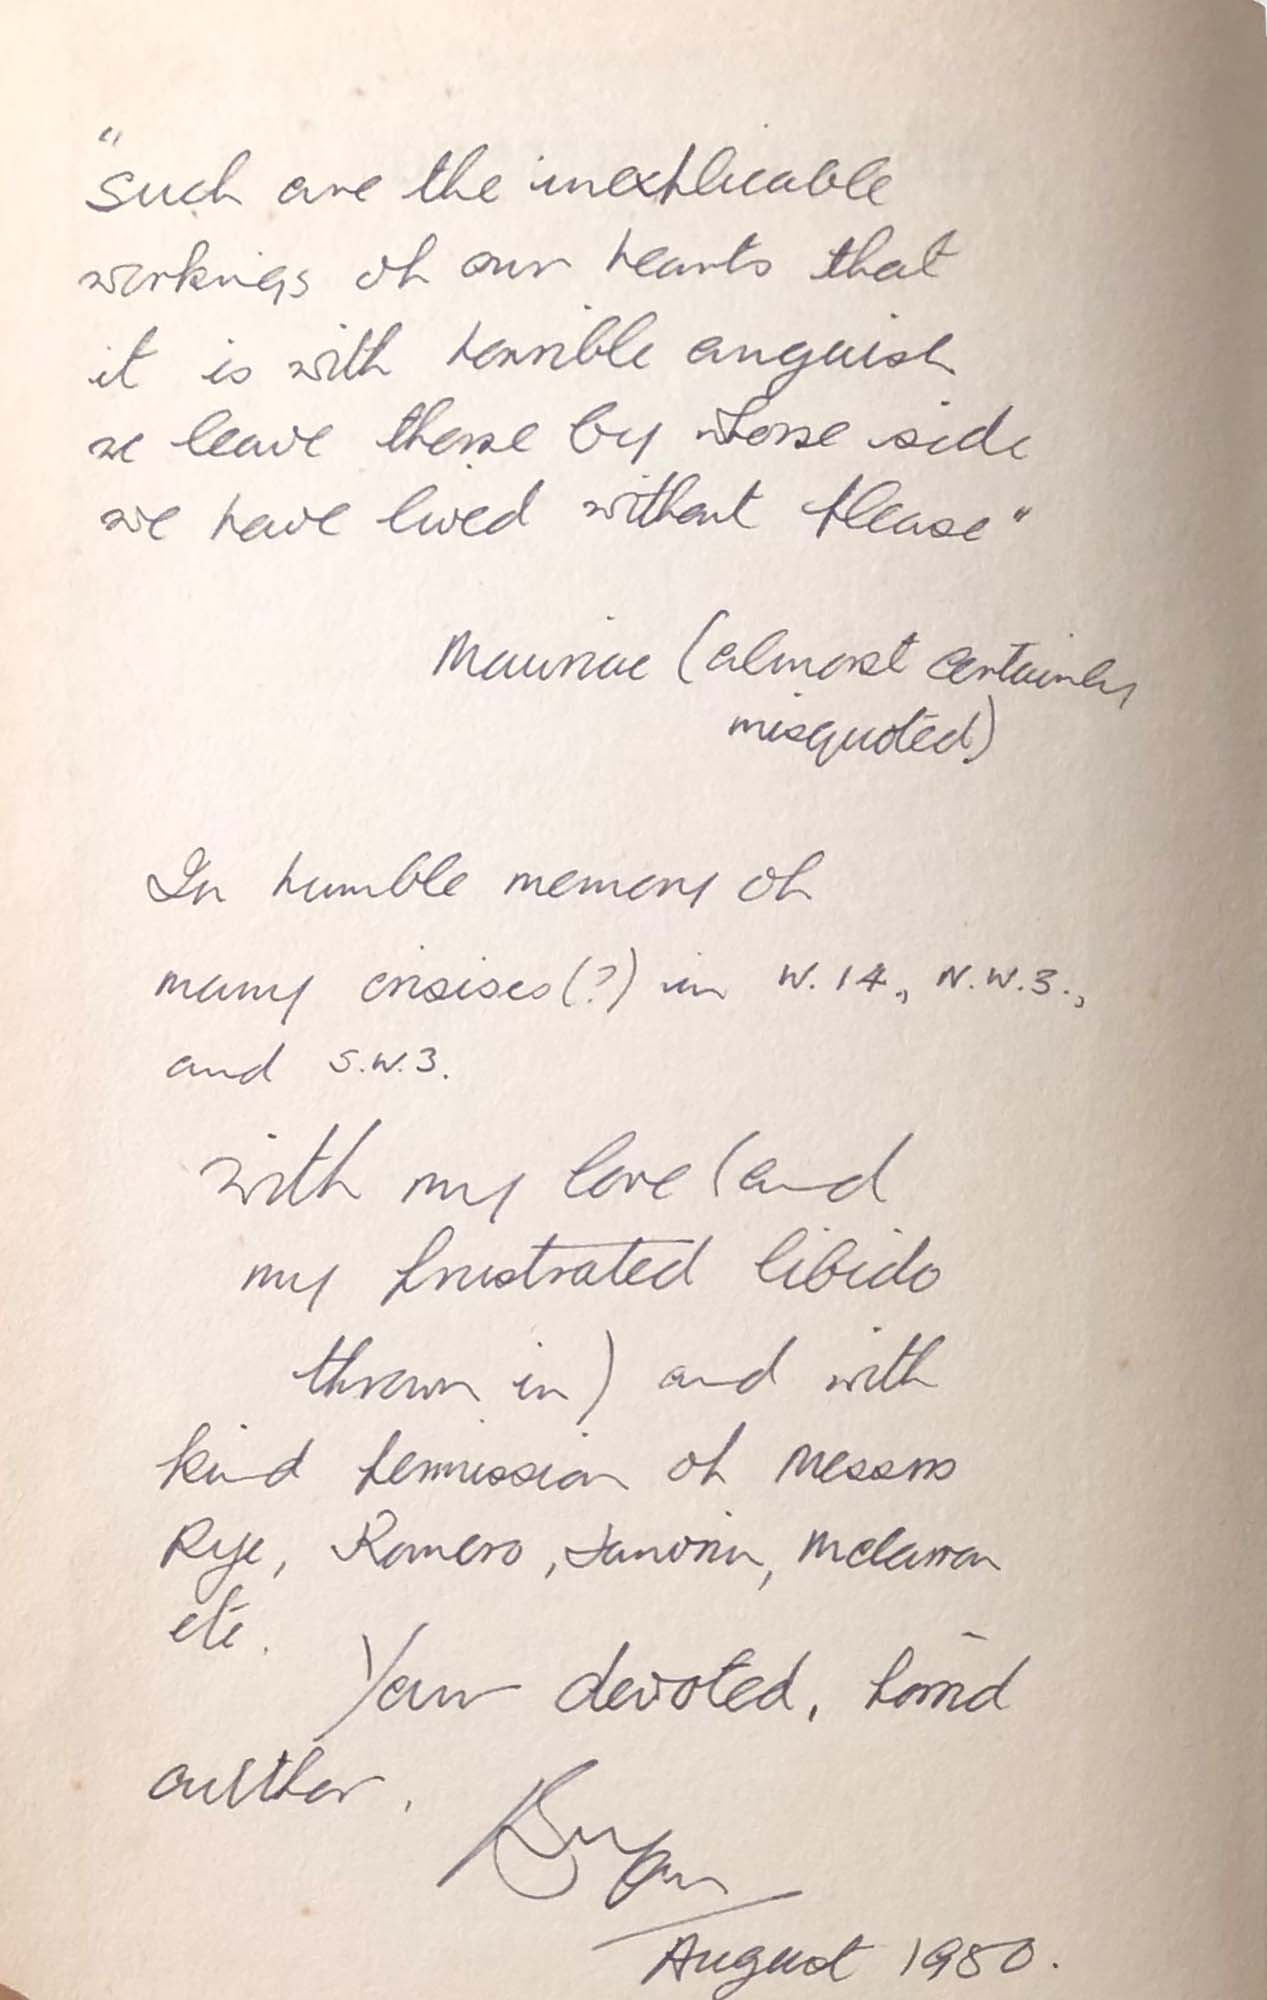 "
Such are the inexplicable
workings of our hearts that
it is with horrible anguish
we leave those by whose side
we have lived without please"
Mauriac (almost certainly
misquoted)
In humble memory of
many crisises(?) in W.14., N.W.3.,
and S.W.3.
with my love (and
my frustrated libido
thrown in) and with
kind permission of Messrs
Rye, Romero, McLarran
etc.
Your devoted, horrid
author.
August 1980.